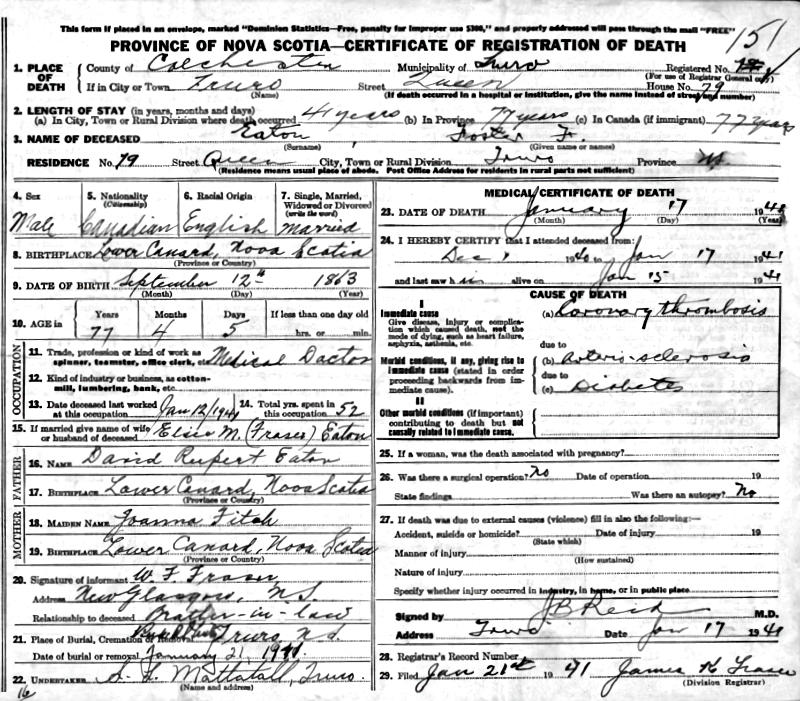 This form if placed in an envelope, marked "Dominion Statistics—Free, penalty for improper use $300," and properly addressed will pass through the mail "FREE"
151
PROVINCE OF NOVA SCOTIA—CERTIFICATE OF REGISTRATION OF DEATH
1. PLACE OF DEATH County of Colchester Municipality of Truro Registered No.
(For use of Registrar General only)
If in City or Town Truro Street Queen House No. 79
(Name) (If death occurred in a hospital or institution, give the name instead of street and number)
2. LENGTH OF STAY (in years, months and days)
(a) In City, Town or Rural Division where death occurred 41 years (b) In Province 77 years (c) In Canada (if immigrant) 77 years
3. NAME OF DECEASED Eaton Foster F.
(Surname) (Given name or names)
RESIDENCE No. 79 Street Queen City, Town or Rural Division Truro Province NS
(Residence means usual place of abode. Post Office Address for residents in rural parts not sufficient)
4. Sex 5. Nationality (Citizenship) 6. Racial Origin 7. Single, Married, Widowed or Divorced (write the word)
Male Canadian English Married
8. BIRTHPLACE Lower Canard, Nova Scotia
(Province or Country)
9. DATE OF BIRTH September 12th 1863
(Month) (Day) (Year)
10. AGE in Years Months Days If less than one day old
77 4 5 hrs. or min.
OCCUPATION
11. Trade, profession or kind of work as spinner, teamster, office clerk, etc. Medical Doctor
12. Kind of industry or business, as cotton-mill, lumbering, bank, etc.
13. Date deceased last worked at this occupation Jan 12/1941 14. Total yrs. spent in this occupation 52
15. If married give name of wife or husband of deceased Elsie M. (Fraser) Eaton
FATHER
16. NAME David Rupert Eaton
17. BIRTHPLACE Lower Canard, Nova Scotia
(Province or Country)
MOTHER
18. MAIDEN NAME Joanna Fitch
19. BIRTHPLACE Lower Canard, Nova Scotia
(Province or Country)
20. Signature of informant W. F. Fraser
Address New Glasgow, N.S.
Relationship to deceased Brother-in-law
21. Place of Burial, Cremation or Removal Truro, N.S.
Date of burial or removal January 21 1941
22. UNDERTAKER Mattatall, Truro.
(Name and address)
16
MEDICAL CERTIFICATE OF DEATH
23. DATE OF DEATH January 17 194
(Month) (Day) (Year)
24. I HEREBY CERTIFY that I attended deceased from:
Dec 1 1940 to Jan 17 1941
and last saw him alive on Jan 15 1941
CAUSE OF DEATH
I
Immediate cause
Give disease, injury or complication which caused death, not the mode of dying, such as heart failure, asphyxia, asthenia, etc.
(a) Coronary thrombosis
due to
Morbid conditions, if any, giving rise to immediate cause (stated in order proceeding backwards from immediate cause).
(b) Arterio-sclerosis
due to
(c) Diabetes
II
Other morbid conditions (if important) contributing to death but not causally related to immediate cause.
25. If a woman, was the death associated with pregnancy?
26. Was there a surgical operation? No Date of operation 19
State findings Was there an autopsy? No
27. If death was due to external causes (violence) fill in also the following:—
Accident, suicide or homicide? Date of injury 19
(State which)
Manner of injury
(How sustained)
Nature of injury
Specify whether injury occurred in industry, in home, or in public place
Signed by J B Reid M.D.
Address Truro Date Jan 17 1941
28. Registrar's Record Number
29. Filed Jan 21st 1941 James K Fraser
(Division Registrar)